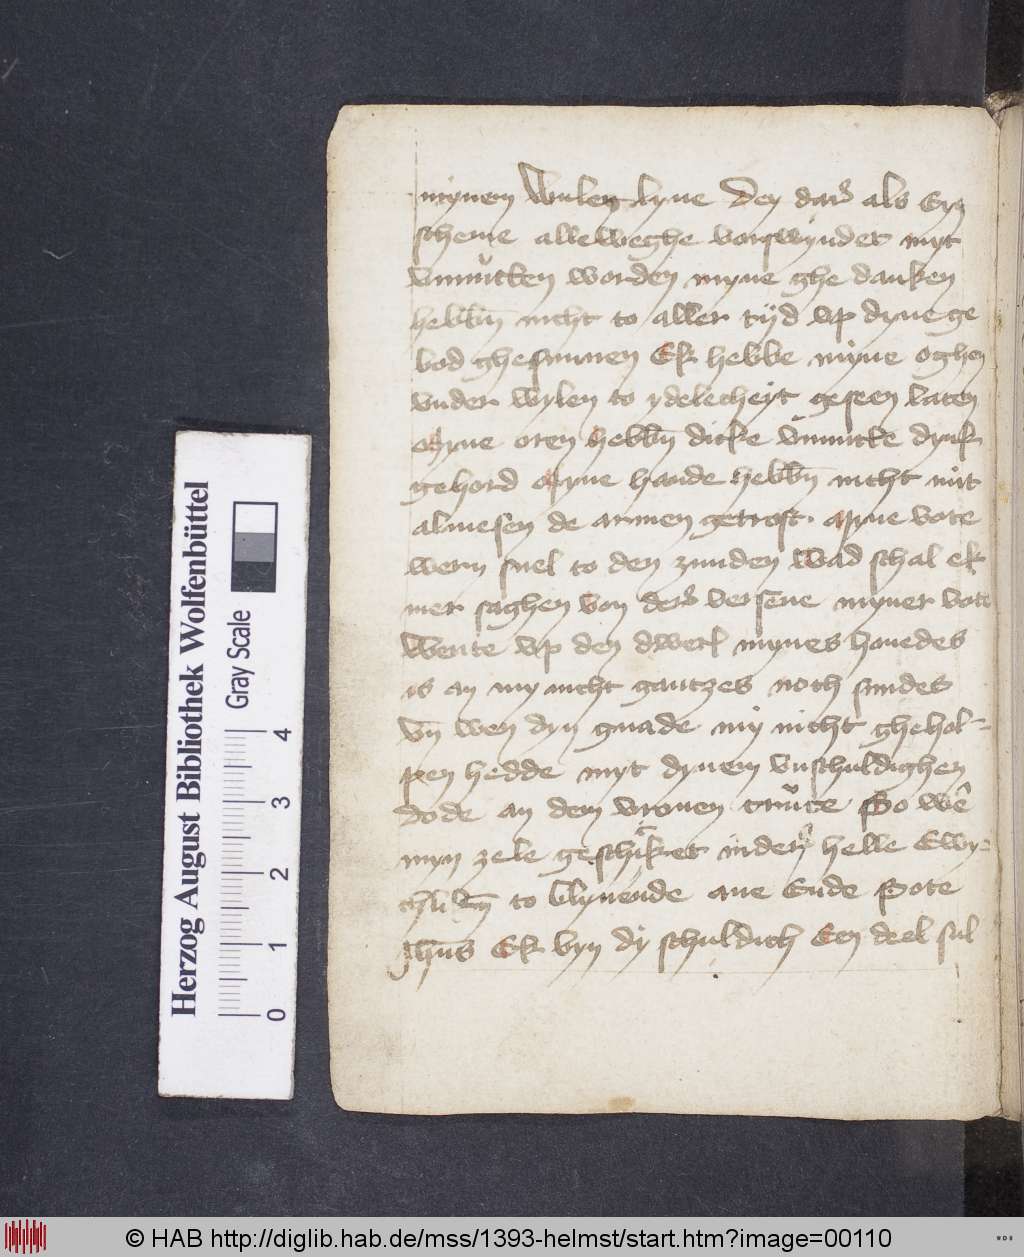 mynem vulen lyue den dar als Ey
scheme alleweghe vorswyndet myt
vnnutten worden myne ghe danken
hebbn̄ nicht to aller tijd vp dyne ge
bod ghesunnen Ek hebbe myne oghen
vnder wylen to ydelecheyt geseen laten
Myne oren hebbn̄ dicke vnnutte dynk
gehord Myne hande hebbn̄ nicht mit
almesen de armen getrost. Myne vote
wern snel to den zunden wad schal ek
mer saghen von der versene myner vote
wente vp den dwerl mynes houedes
is an my nicht gantzes noch sundes
vn̄ wen dyn gnade my nicht ghehol-
pen hedde myt dynem vnschuldighen
dode an dem vronen cruce So we
myn zele geschikket in der helle Ewy-
to blyuende ane Ende Sote
Jhūs Ek byn dy schuldich Een deel sul
Herzog August Bibliothek Wolfenbüttel
Gray Scale
0 1 2 3 4
© HAB http://diglib.hab.de/mss/1393-helmst/start.htm?image=00110